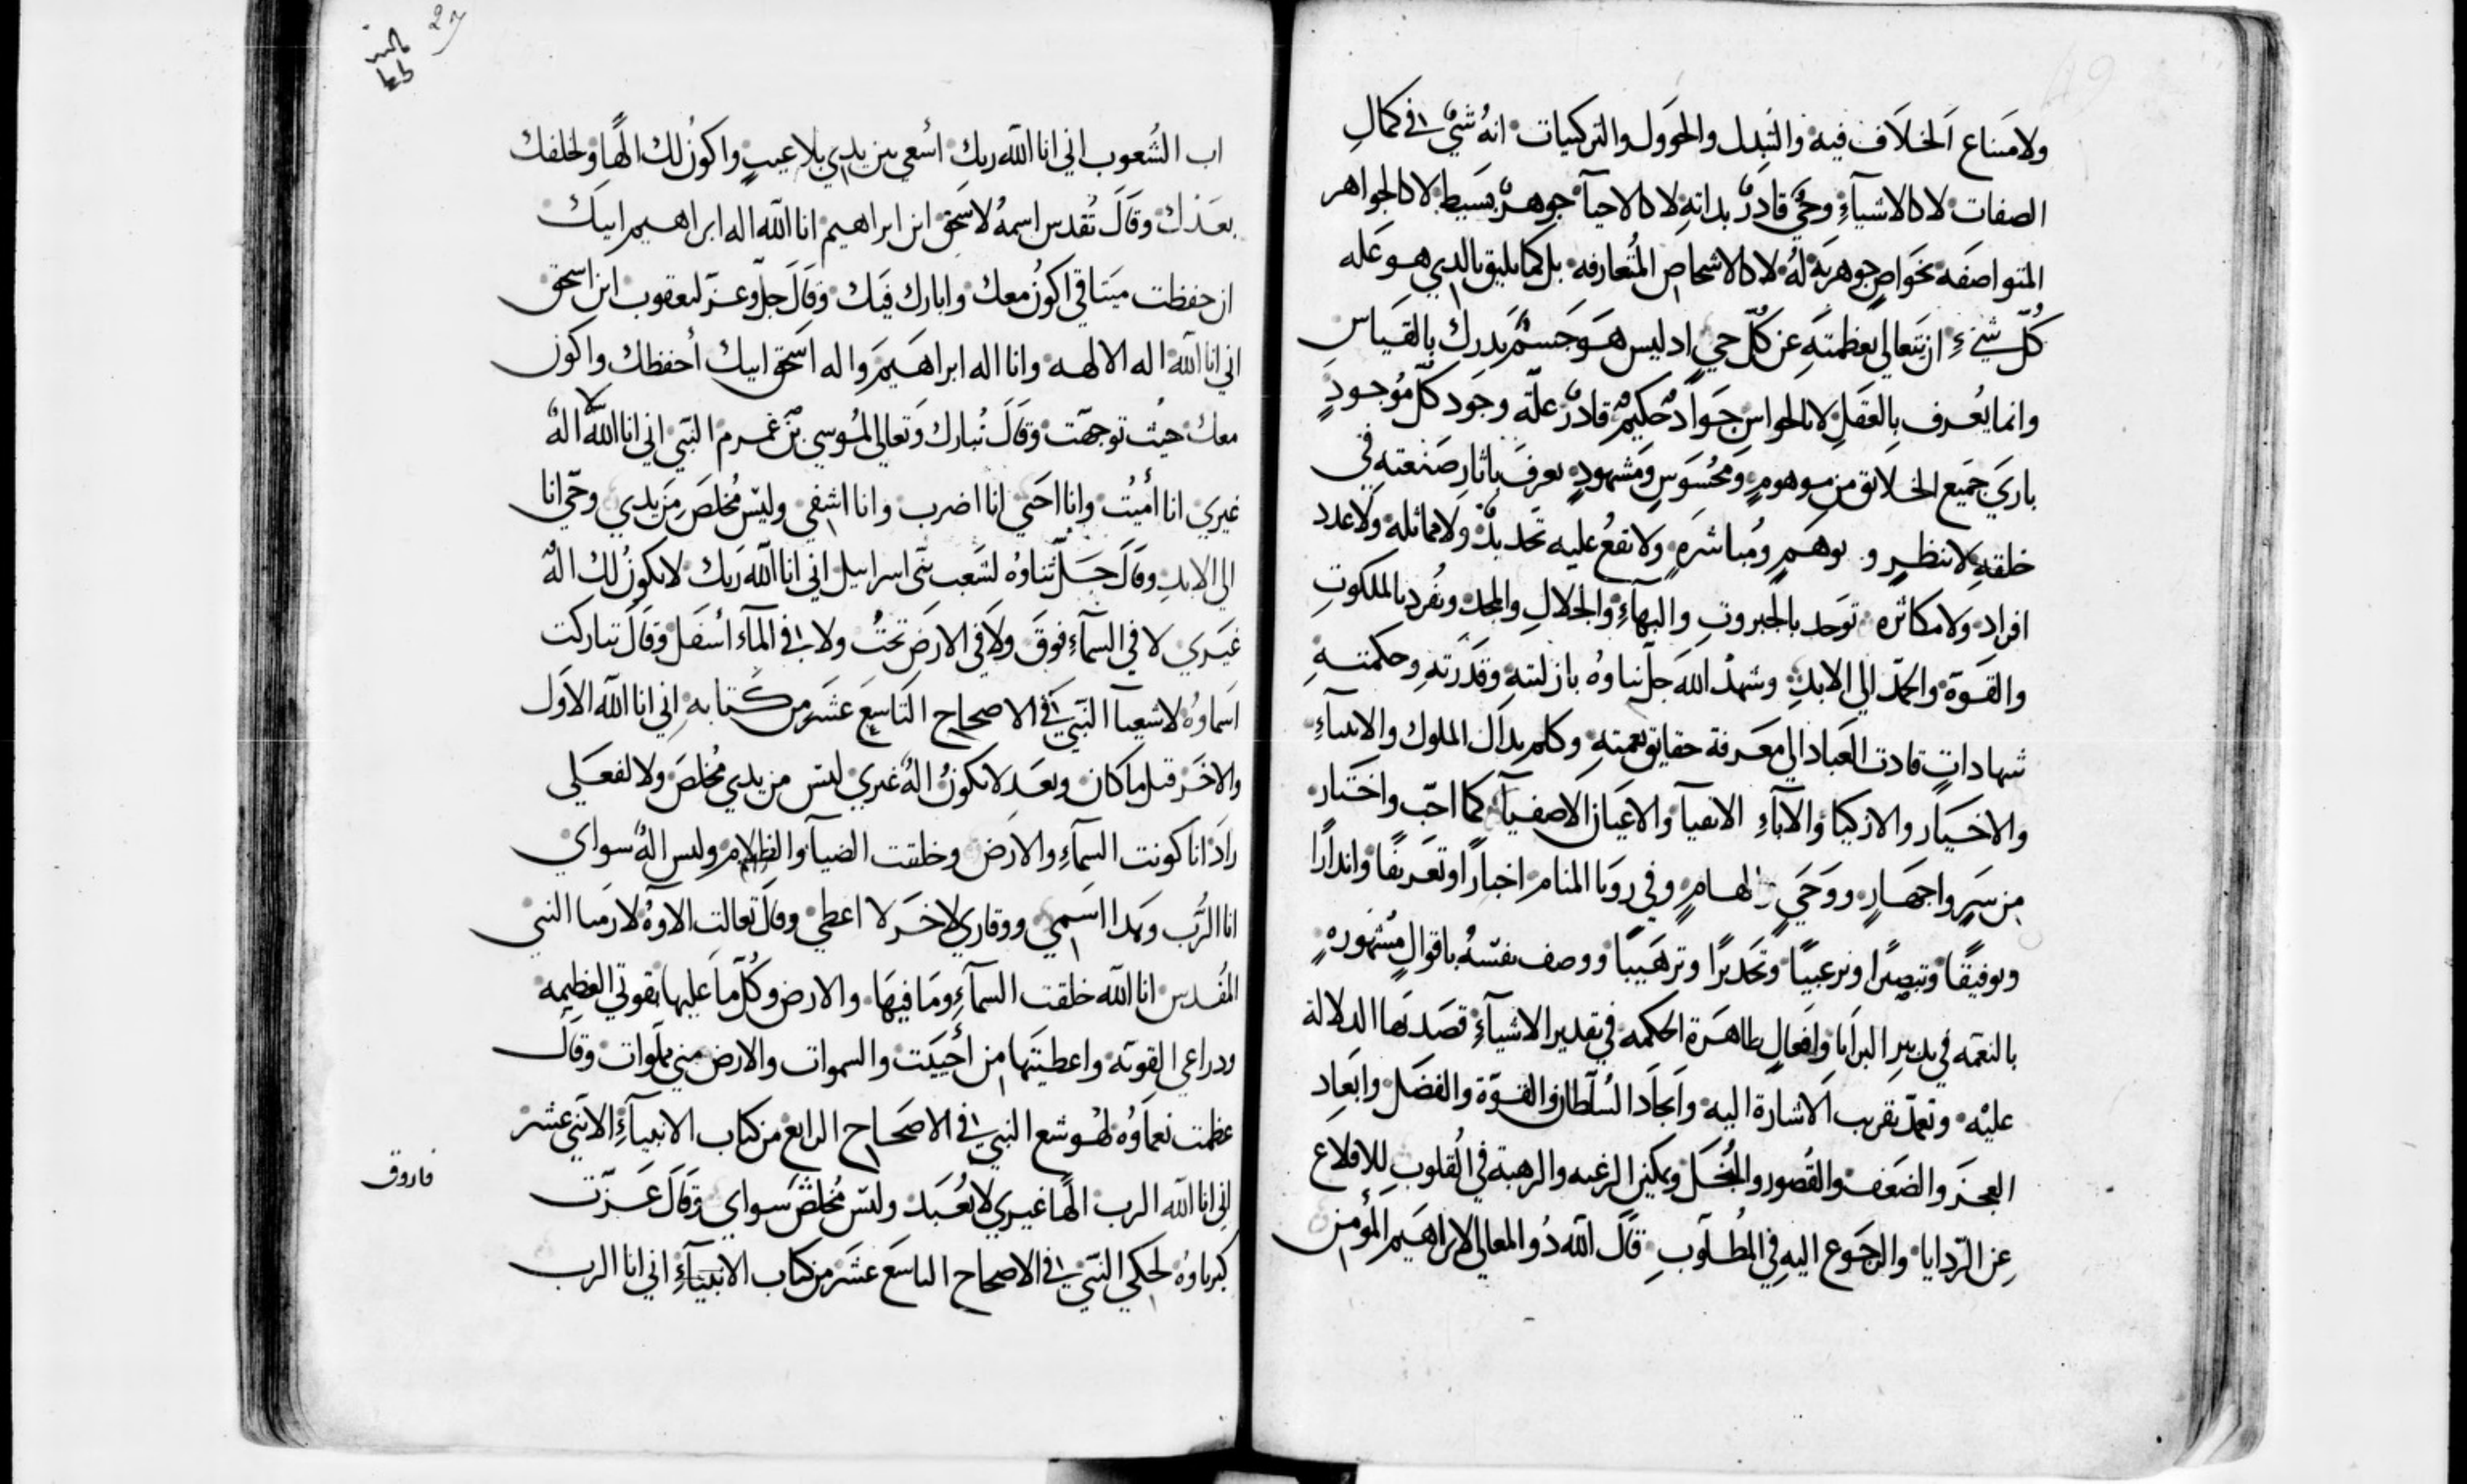 ولامساع الخلاف فيه والتبدل والحوول والتركيبات انه شيٌ في كمالِ
الصفات لا كالاشيآءِ وحيٌ قادرٌ بداتهِ لا كالاحيآ جوهرٌ بسيط لا كالجواهر
المتواصفه بخواصٍ جوهريةٍ له لا كالاشخاص المُتعارفه بل كما يليق بالدي هو عله
كُلّ شيءٍ ان يتعالي بعظمتهِ عن كُلّ حي اد ليس هو جسمٌ يدرك بالقياس
وانما يُعرف بالعقلِ لا بالحواسِ جوادٌ حكيمٌ قادرٌ علّة وجود كلّ موُجودٍ
باري جميع الخلايق من موهومٍ ومحسوسٍ ومشهودٍ يعرف باثار صنعتهِ في
خلقهِ لا بنظرٍ و بوهمٍ ومُباشرهٍ ولا تقعُ عليه تحديدٌ ولا مماثله ولا عدد
افراد ولا مكاثره توحد بالجبروتِ والبهآءِ والجلالِ والمجد وتُفرد بالملكوتِ
والقوّة والحمد الي الابدِ وشهد الله جلّ ثناوهُ بازليتهِ وقدرتهِ وحكمتهِ
شهاداتٍ قادت العباد الي معرفة حقايق نعمتهِ وكلم بدلك الملوك والانبيآءِ
والاخيار والازكيا والآباءِ الاتقيآ والاعيان الاصفيآ كما احبّ واختار
من سرٍ واجهارٍ ووحي والهامٍ وفي رويا المنام اخباراً وتعريفاً واندارًا
وتوفيقًا وتبصيرًا وترغيبًا وتحديرًا وترهيبًا ووصف نفسهُ باقوالٍ مشهورهٍ
بالنعمه في تدبير البرايا وافعالٍ ظاهرة الحكمه في تقدير الاشيآءِ قصد بها الدلالة
عليْه وتعمد بقريب الاشارة اليه وايجاد السُلطان والقوّة والفضل وابعاد
العجز والضعف والقصور والبُخل وتمكين الرغبه والرهبة في القلوبِ للاقلاع
عن الردايا والرجوع اليهِ في المطُلوبِ قال الله دُو المعالي لابراهيم المُؤمن
اب الشُعوب اني انا الله ربك اُسعي بين يدي بلا عيبٍ واكونُ لك الهًا ولخلفك
بعدك وقال تُقدس اسمهُ لاسحق ابن ابراهيم انا الله اله ابراهيم ابيك
ان حفظت ميتاقي اكونُ معك وابارك فيك وقال جلّ وعزّ ليعقوب ابن اسحق
اني انا الله اله الالهه وانا اله ابراهيم واله اسحق ابيك أحفظك واكون
معك حيتُ توجهت وقال تُبارك وتعالي لمُوسي بن عمرم النبي اني انا الله لا الهٌ
غيري انا أميتُ وانا احي انا اضرب وانا اشفي وليس مُخلص من يدي وحي انا
الي الابدِ وقال جلّ ثناوهُ لشعب بني اسراييل اني انا الله ربك لا يكونُ لك الهٌ
غيري لا في السمآءِ فوق ولا في الارض تحتُ ولا في المآء أسفل وقال تباركت
اسماوهُ لاشعيآ النبي في الاصحاح التاسع عشر من كتابهِ اني انا الله الاول
والاخر قبل ما كان وبعد لا يكونُ الهٌ غيري ليس من يدي مُخلص ولا لفعلي
رادٌ انا كونت السمآءِ والارض وخلقت الضيآ والظلام وليس الهٌ سواي
انا الرَّب وهدا اسمي ووقاري لاخر لا اعطي وقال تعالت الاوهُ لارميا النبي
المُقدس انا الله خلقت السمآءِ وما فيها والارض وكُلّ ما عليها بقوتي العظيمه
ودراعي القويّه واعطيتها من أحببت والسموات والارض مني مملوات وقال
عظمت نعماوهُ لهوشع النبي في الاصحاح الرابع من كتاب الانبيآءِ الاتني عشر
اني انا الله الرب الهًا غيري لا يُعبد وليس مُخلصٌ سواي وقال عزّت
كبرياوهُ لحكي النبي في الاصحاح التاسع عشر من كتاب الانبيآءِ اني انا الرب
فاروق